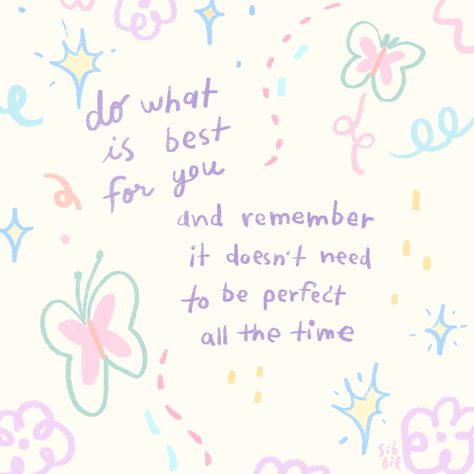 do what
is best
for you
and remember
it doesn't need
to be perfect
all the time
sib
bil